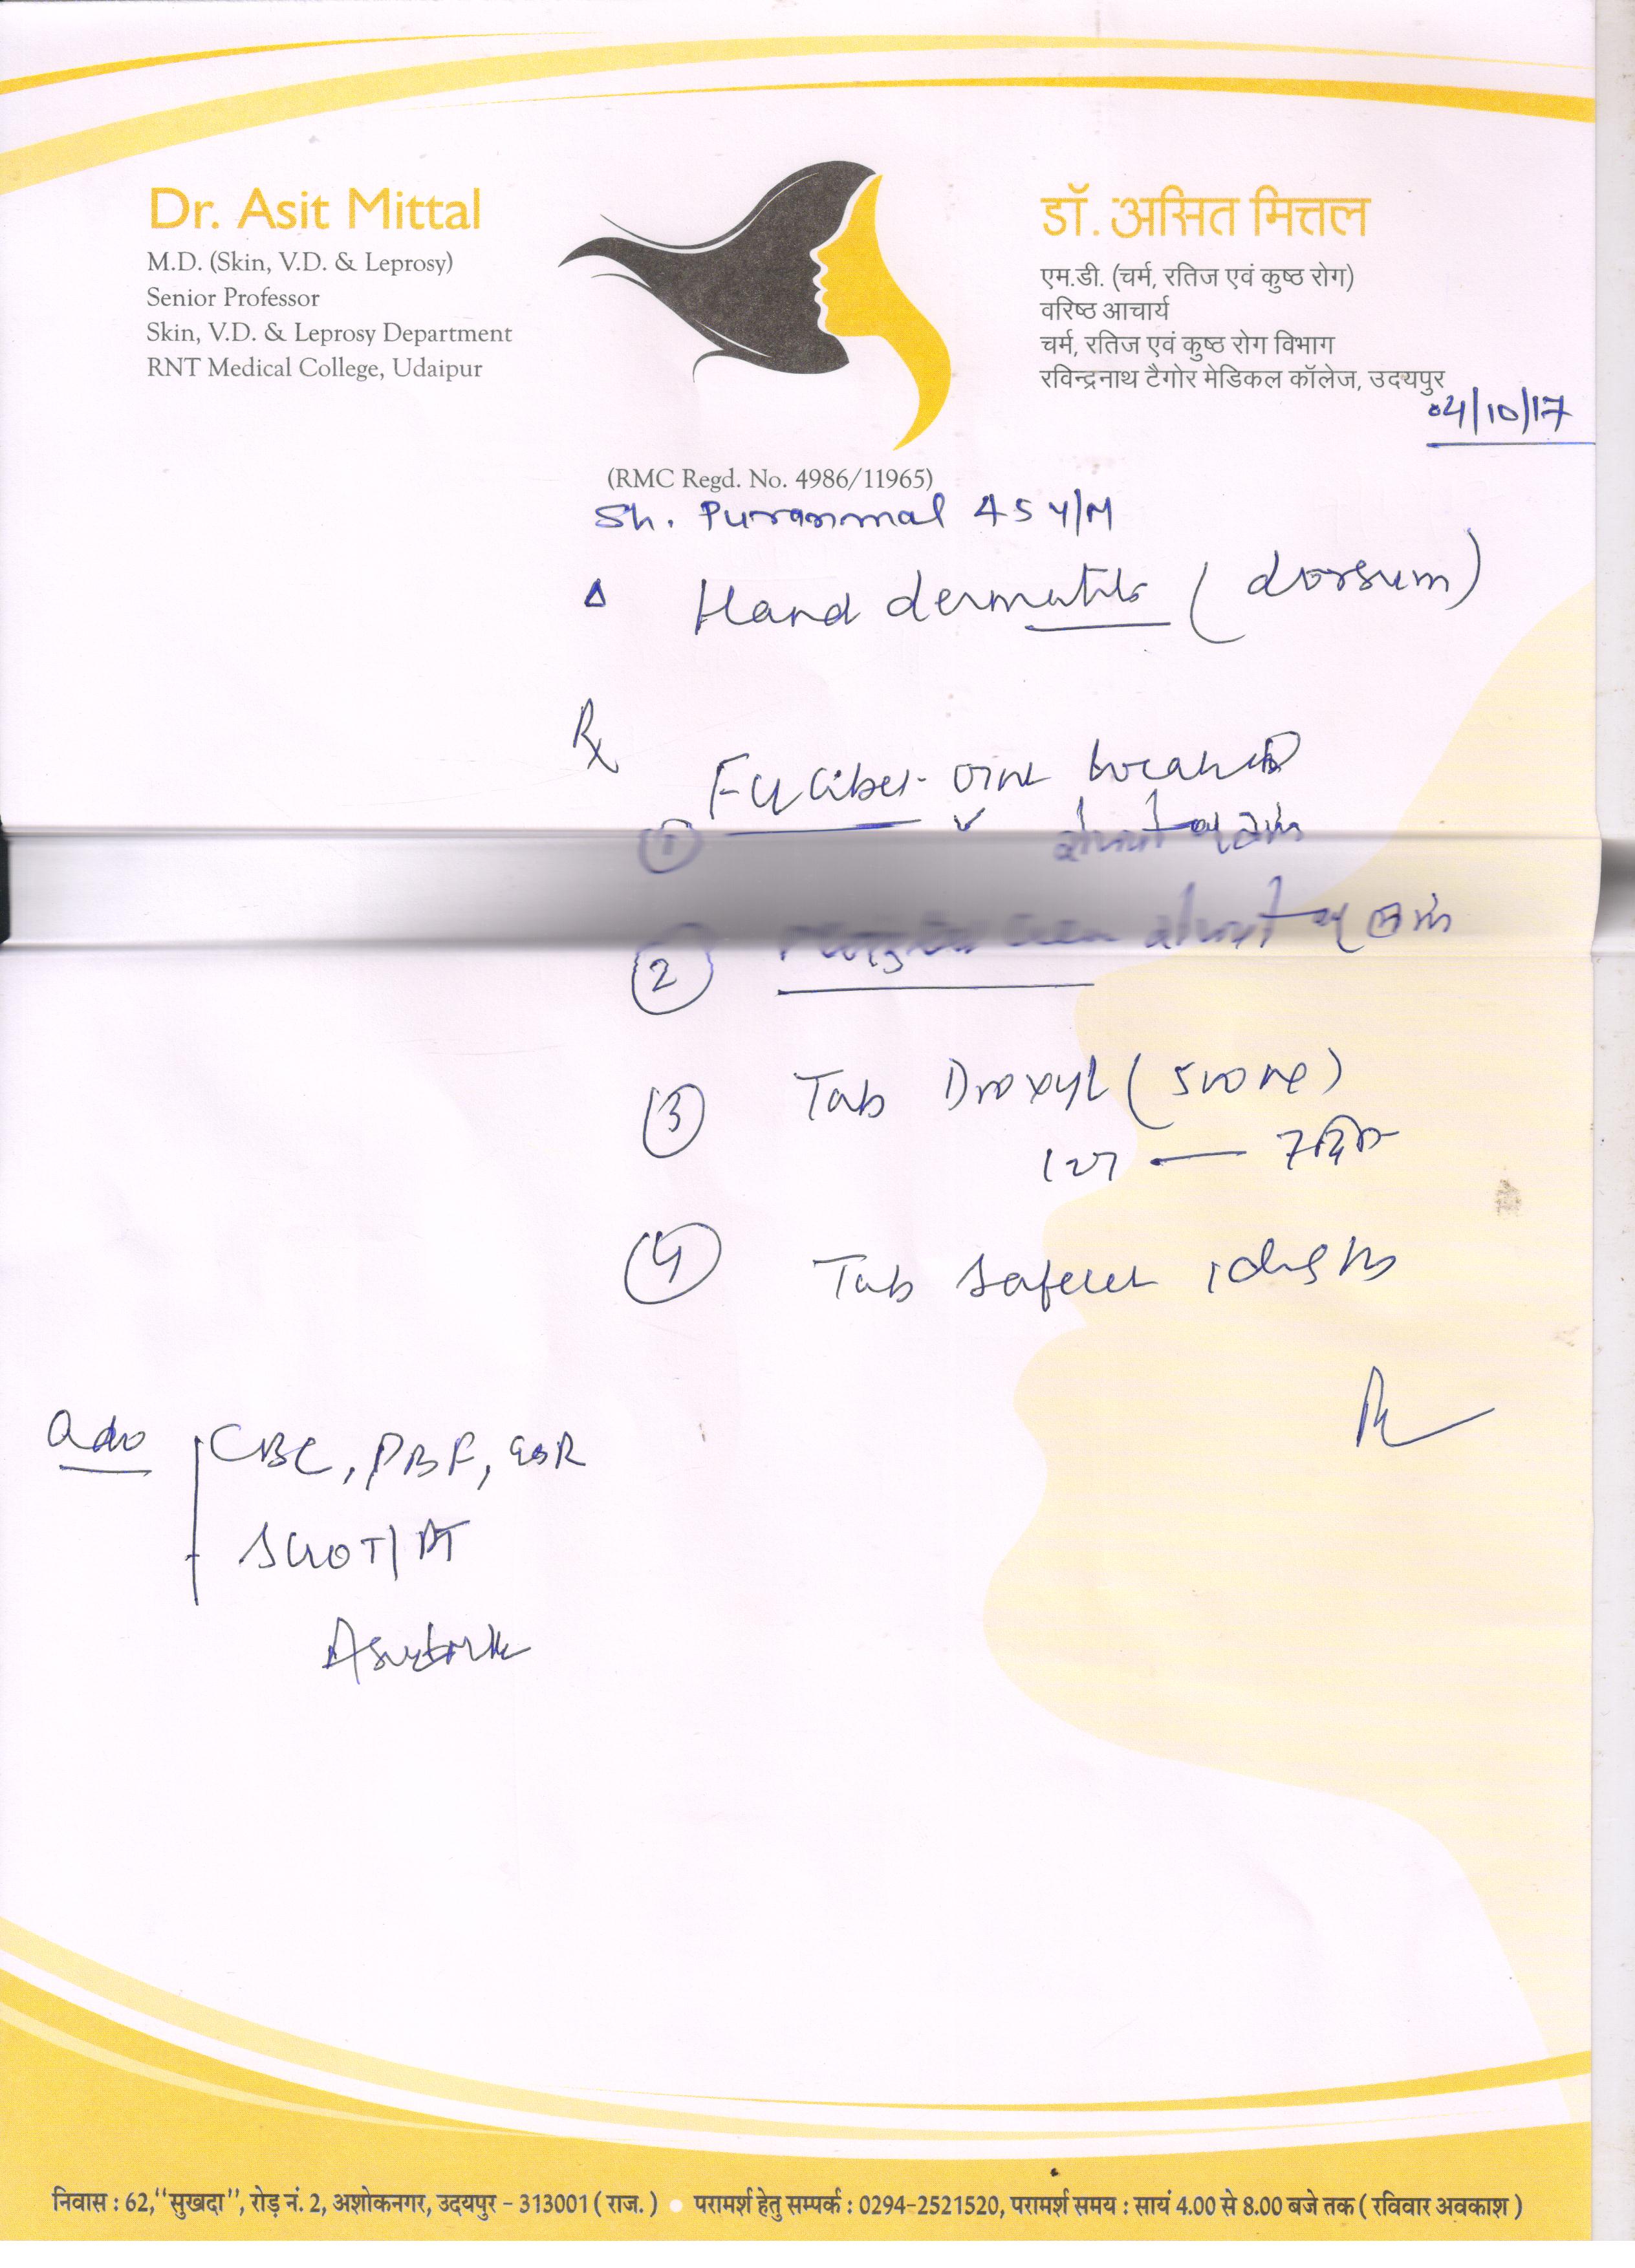 Dr. Asit Mittal
M.D. (Skin, V.D. & Leprosy)
Senior Professor
Skin, V.D. & Leprosy Department
RNT Medical College, Udaipur
डॉ. असित मित्तल
एम.डी. (चर्म, रतिज एवं कुष्ठ रोग)
वरिष्ठ आचार्य
चर्म, रतिज एवं कुष्ठ रोग विभाग
रविन्द्रनाथ टैगोर मेडिकल कॉलेज, उदयपुर
04/10/17
(RMC Regd. No. 4986/11965)
Sh. Puranmal 45 Y/M
Δ Hand dermatitis (dorsum)
Rx
① oint
②
③ Tab Droxyl (500mg)
7 दिन
④ Tab
Adv CBC, PBF, ESR
SGOT/PT
निवास : 62,"सुखदा", रोड़ नं. 2, अशोकनगर, उदयपुर - 313001 ( राज. ) • परामर्श हेतु सम्पर्क : 0294-2521520, परामर्श समय : सायं 4.00 से 8.00 बजे तक ( रविवार अवकाश )